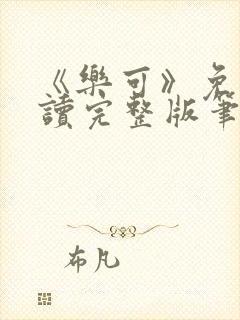 《樂可》免
讀完整版筆
布凡